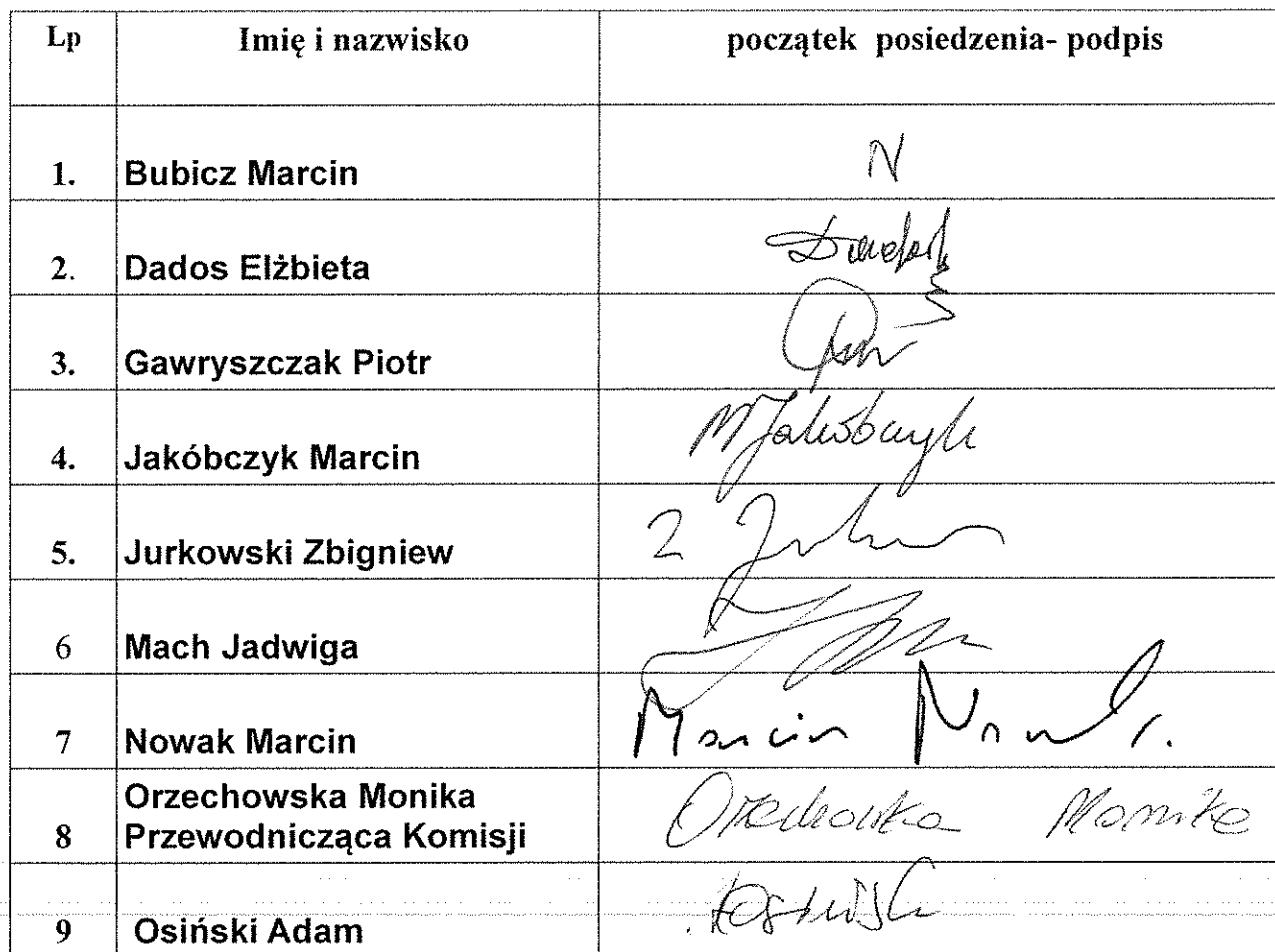 Lp Imię i nazwisko początek posiedzenia- podpis
1. Bubicz Marcin N
2. Dados Elżbieta
3. Gawryszczak Piotr
4. Jakóbczyk Marcin MJakóbczyk
5. Jurkowski Zbigniew
6 Mach Jadwiga
7 Nowak Marcin Marcin Nowak
Orzechowska Monika
8 Przewodnicząca Komisji Orzechowska Monika
9 Osiński Adam